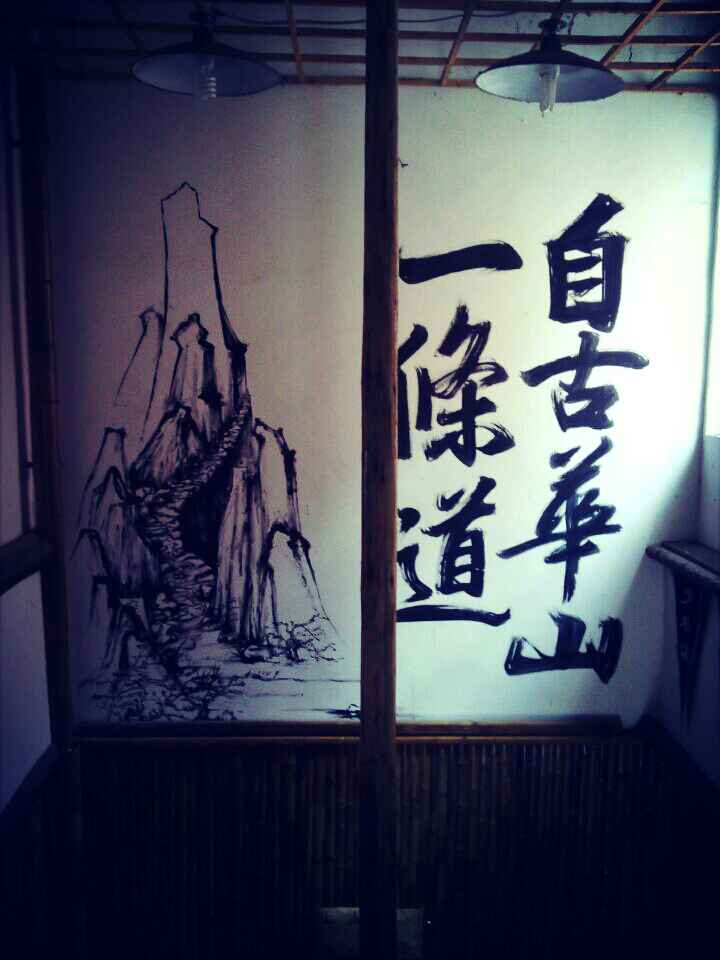 自古華山
一條道